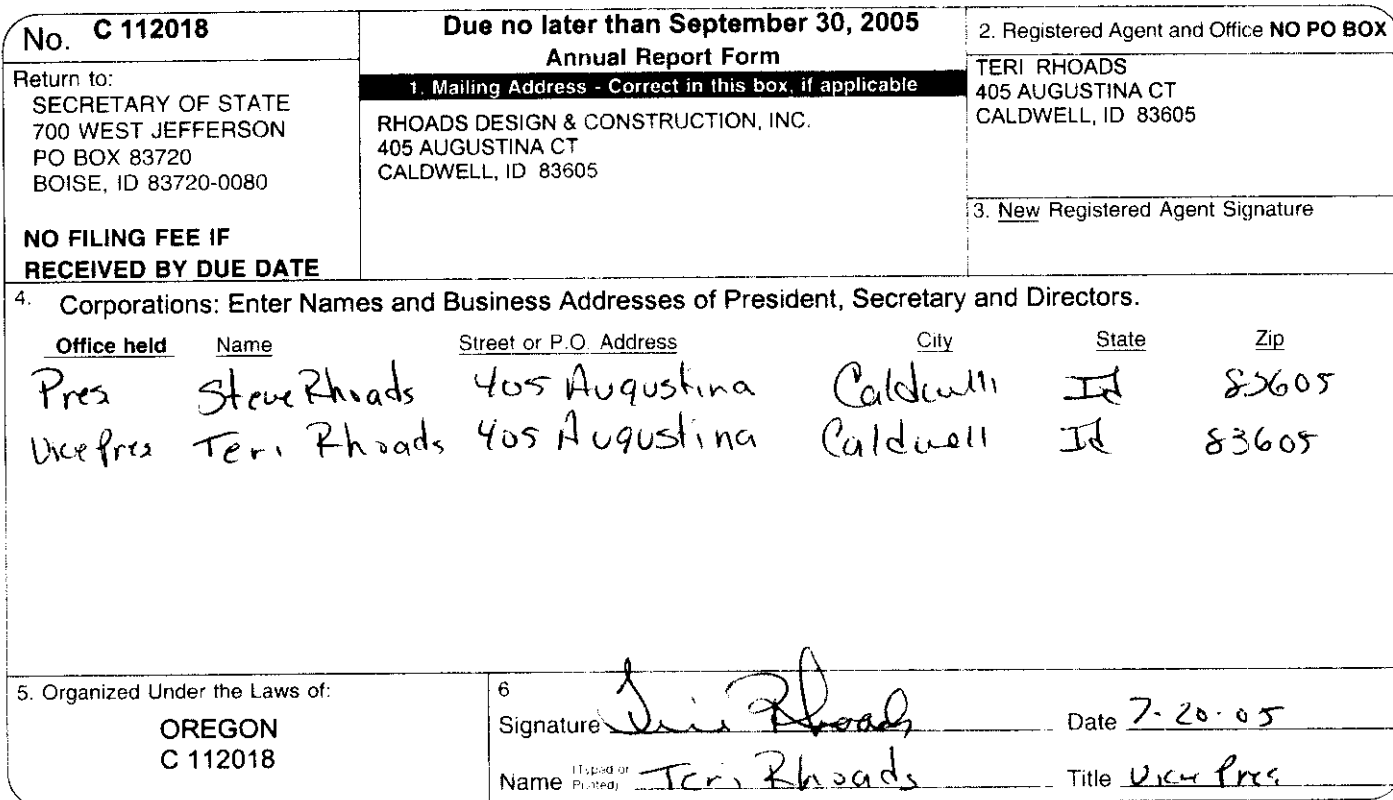 No. C 112018
Return to:
SECRETARY OF STATE
700 WEST JEFFERSON
PO BOX 83720
BOISE, ID 83720-0080
NO FILING FEE IF
RECEIVED BY DUE DATE
Due no later than September 30, 2005
Annual Report Form
1. Mailing Address - Correct in this box, if applicable
RHOADS DESIGN & CONSTRUCTION, INC.
405 AUGUSTINA CT
CALDWELL, ID 83605
2. Registered Agent and Office NO PO BOX
TERI RHOADS
405 AUGUSTINA CT
CALDWELL, ID 83605
3. New Registered Agent Signature
4. Corporations: Enter Names and Business Addresses of President, Secretary and Directors.
Office held Name Street or P.O. Address City State Zip
Pres Steve Rhoads 405 Augustina Caldwell Id 83605
Vice Pres Teri Rhoads 405 Augustina Caldwell Id 83605
5. Organized Under the Laws of:
OREGON
C 112018
6
Signature Teri Rhoads Date 7-20-05
Name (Typed or Printed) Teri Rhoads Title Vice Pres